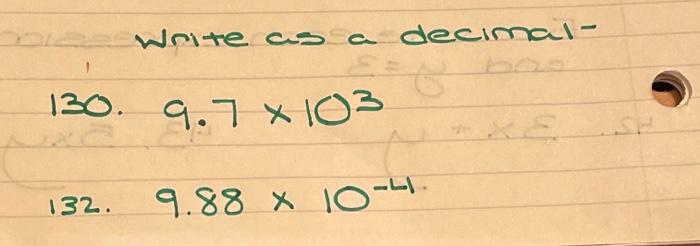 Write as a decimal-
130. 9.7 × 10³
132. 9.88 × 10⁻⁴